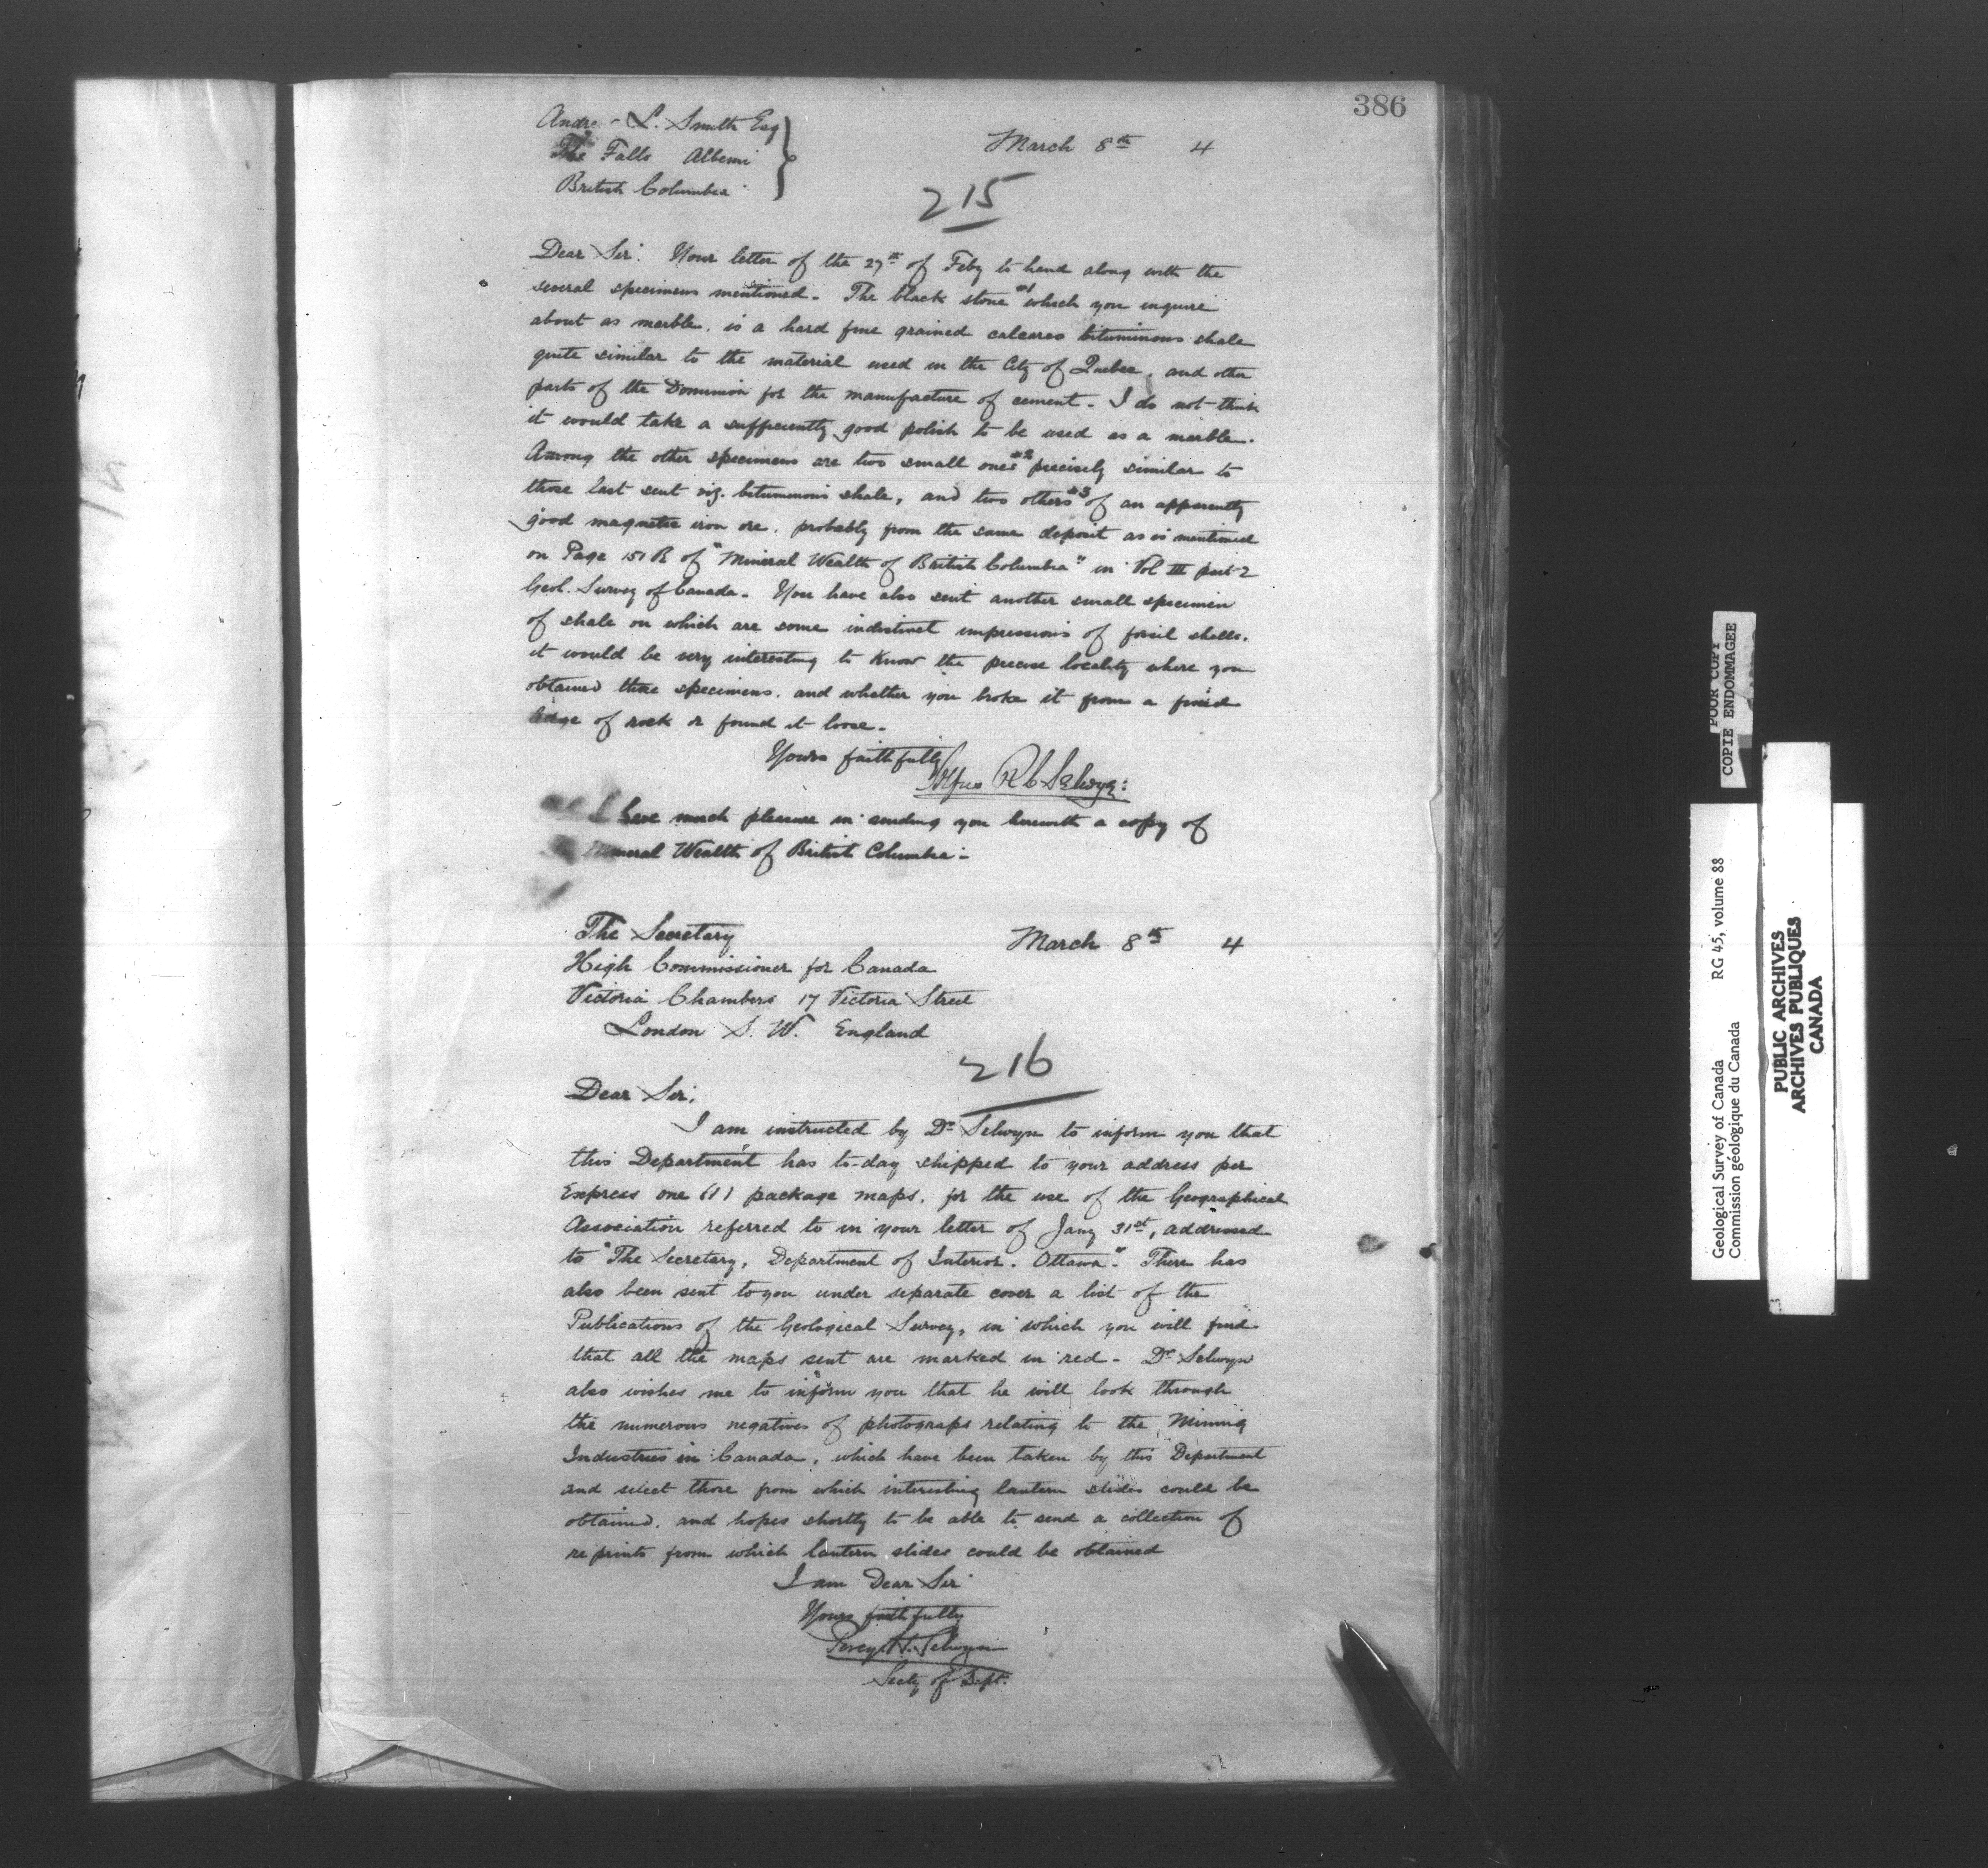 386
Andre L. Smith Esq
The Falls Alberni
British Columbia
March 8th 4
215
Dear Sir: Your letter of the 27th of Feby to hand along with the
several specimens mentioned. The black stone #1 which you inquire
about as marble, is a hard fine grained calcareo bituminous shale
quite similar to the material used in the City of Quebec, and other
parts of the Dominion for the manufacture of cement. I do not think
it would take a sufficiently good polish to be used as a marble.
Among the other specimens are two small ones #2 precisely similar to
those last sent viz. bituminous shale, and two others #3 of an apparently
good magnetic iron ore, probably from the same deposit as is mentioned
on Page 151 R of "Mineral Wealth of British Columbia" in Vol III part 2
Geol. Survey of Canada. You have also sent another small specimen
of shale on which are some indistinct impressions of fossil shells.
it would be very interesting to know the precise locality where you
obtained these specimens, and whether you broke it from a fixed
ledge of rock or found it loose.
Yours faithfully
Alfred R C Selwyn
I have much pleasure in sending you herewith a copy of
Mineral Wealth of British Columbia.
The Secretary
March 8th 4
High Commissioner for Canada
Victoria Chambers 17 Victoria Street
London S. W. England
216
Dear Sir,
I am instructed by Dr Selwyn to inform you that
this Department has to-day shipped to your address per
Express one (1) package maps, for the use of the Geographical
Association referred to in your letter of Jany 31st, addressed
to "The Secretary, Department of Interior. Ottawa". There has
also been sent to you under separate cover a list of the
Publications of the Geological Survey, in which you will find
that all the maps sent are marked in red. Dr Selwyn
also wishes me to inform you that he will look through
the numerous negatives of photograps relating to the Mining
Industries in Canada, which have been taken by this Department
and select those from which interesting lantern slides could be
obtained, and hopes shortly to be able to send a collection of
re prints from which lantern slides could be obtained
I am Dear Sir
Yours faithfully
Percy H. Selwyn
Secty of Dept.
POOR COPY
COPIE ENDOMMAGEE
Geological Survey of Canada RG 45, volume 88
Commission géologique du Canada
PUBLIC ARCHIVES
ARCHIVES PUBLIQUES
CANADA